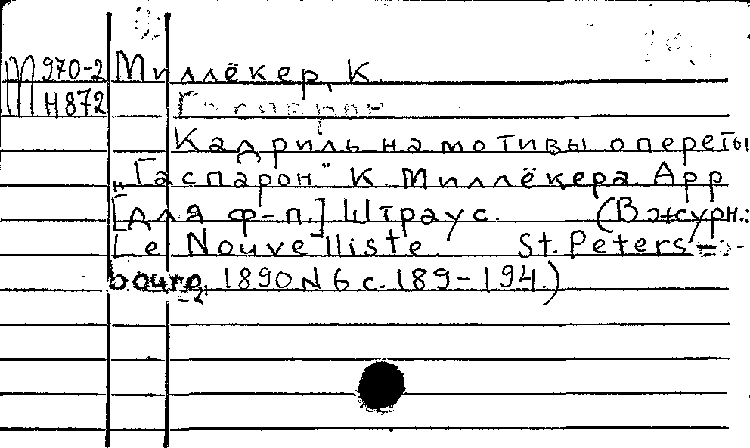 М 970-2 Миллёкер, К.
Н872 Гаспарон
Кадриль на мотивы опереты
„Гаспарон" К. Миллёкера Арр
[для ф-п.] Штраус. (В журн.:
Le Nouvelliste. St. Peters=
bourg, 1890 N 6 с. 189-194.)